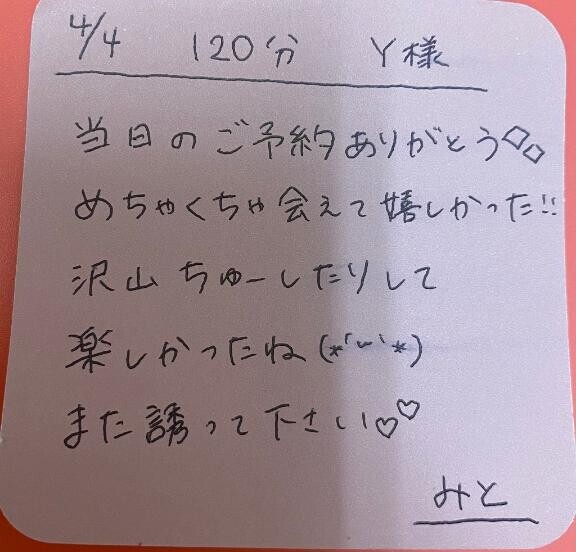 4/4 120分 Y様
当日のご予約ありがとう◇◇
めちゃくちゃ会えて嬉しかった!!
沢山ちゅーしたりして
楽しかったね(*´︶`*)
また誘って下さい♡♡
みと